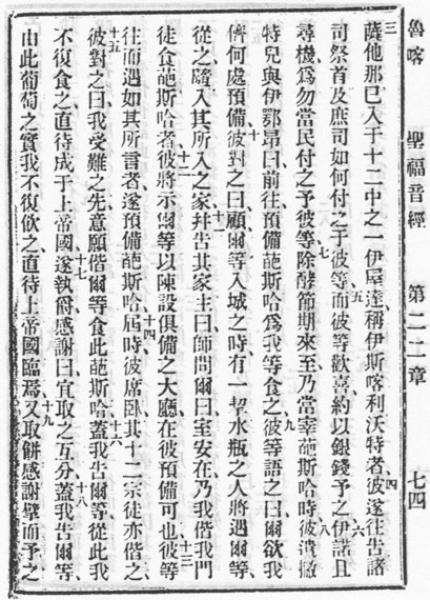 魯喀 聖福音經 第二二章 七四
三薩他那已入于十二中之一伊屋達、稱伊斯喀利沃特者、四彼遂往告諸
司祭首及庶司如何付之于彼等、五而彼等歡喜約以銀錢予之、六伊諾且
尋機爲勿當民付之予彼等、七除酵節期來至、乃當宰葩斯哈時、八彼遣撇
特兒與伊鄂昂曰、前往預備葩斯哈爲我等食之、九彼等語之曰、爾欲我
儕何處預備、十彼對之曰、顧爾等入城之時、有一挈水瓶之人將遇爾等、
從之、隨入其所入之家、十一幷告其家主曰、師問爾曰、室安在、乃我偕我門
徒食葩斯哈者、十二彼將示爾等以陳設俱備之大廳、在彼預備可也、十三彼等
往而遇如其所言者、遂預備葩斯哈、十四屆時、彼席卧、其十二宗徒亦偕之、
十五彼對之曰、我受難之先、意願偕爾等食此葩斯哈、十六蓋我告爾等、從此我
不復食之、直待成于上帝國、十七遂執爵感謝曰、宜取之互分、十八蓋我告爾等、
由此葡萄之實、我不復飲之、直待上帝國臨焉、十九又取餅感謝擘而予之、